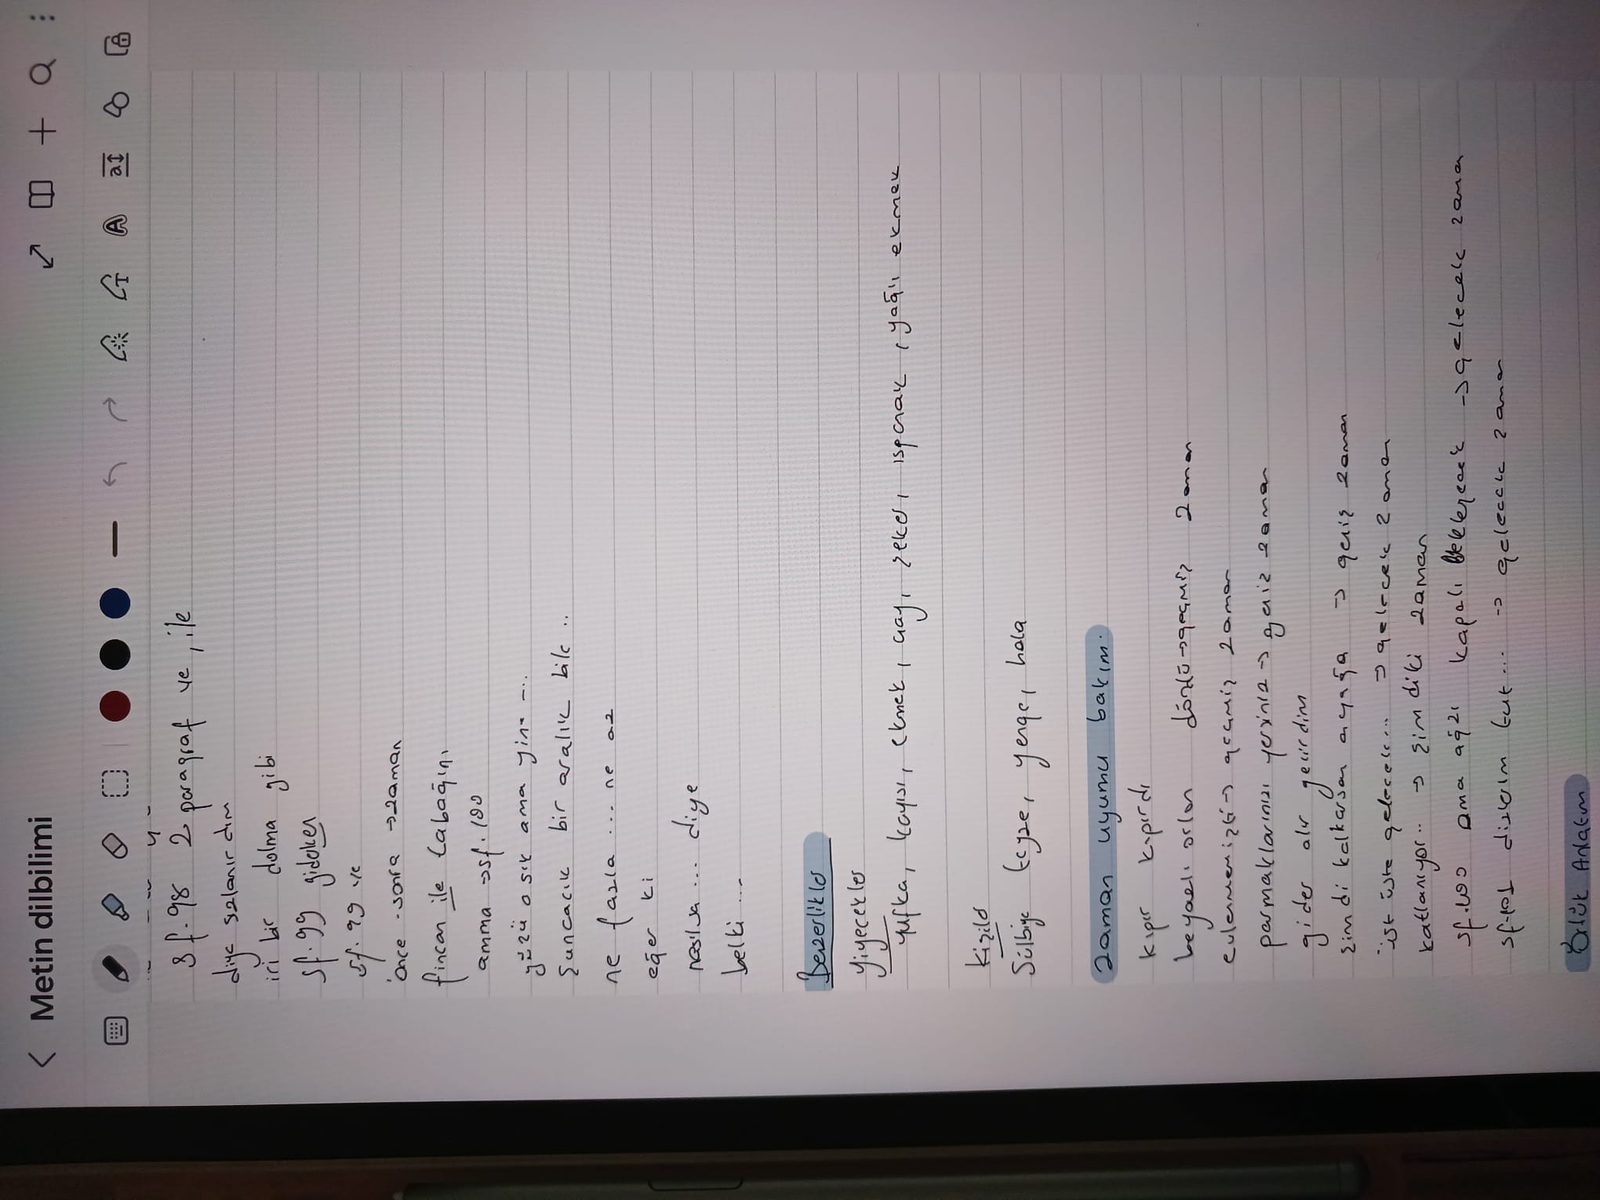 Metin dilbilimi
sf.98 2 paragraf ve, ile
diye sızlanırdım
iri bir dolma gibi
sf.99 giderken
sf.99 ve
önce - sonra → zaman
fincan ile tabağını
amma → sf.100
yüzü asık ama yine ...
şuncacık bir aralık bile ..
ne fazla ... ne az
eğer ki
nasılsa ... diye
belki ...
Benzerlikler
yiyecekler
yufka, kayısı, ekmek, çay, şeker, ıspanak, yağlı ekmek
kişiler
Sülbiye teyze, yenge, hala
zaman uyumu bakım.
kıpır kıpırdı
beyazlı orlon döndü → geçmiş zaman
evlenmemişti → geçmiş zaman
parmaklarınızı yersiniz → geniş zaman
gider alır gelirdim
şimdi kalkarsan ayağa → geniş zaman
üst üste gelecek... → gelecek zaman
katlanıyor.. → şimdiki zaman
sf.100 ama ağzı kapalı bekleyecek → gelecek zaman
sf.101 dizlerim tut... → gelecek zaman
Anlatım